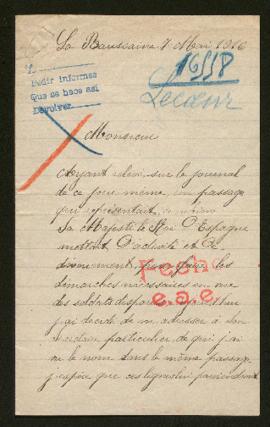 La Baussaine 7 Mai 1916
16558
Pedir informes
Que se hace así
Lecœur
Monsieur
Ayant relevé sur le journal
de ce jour même, un passage
qui représentait
Sa Majesté le Roi d'Espagne
mettant d'activité et de
dévouement, pour faire les
démarches nécessaires en vue
des soldats disparus
j'ai décidé de m'adresser à son
secrétaire particulier de qui j'ai
vu le nom dans le même passage
j'espère que ces lignes